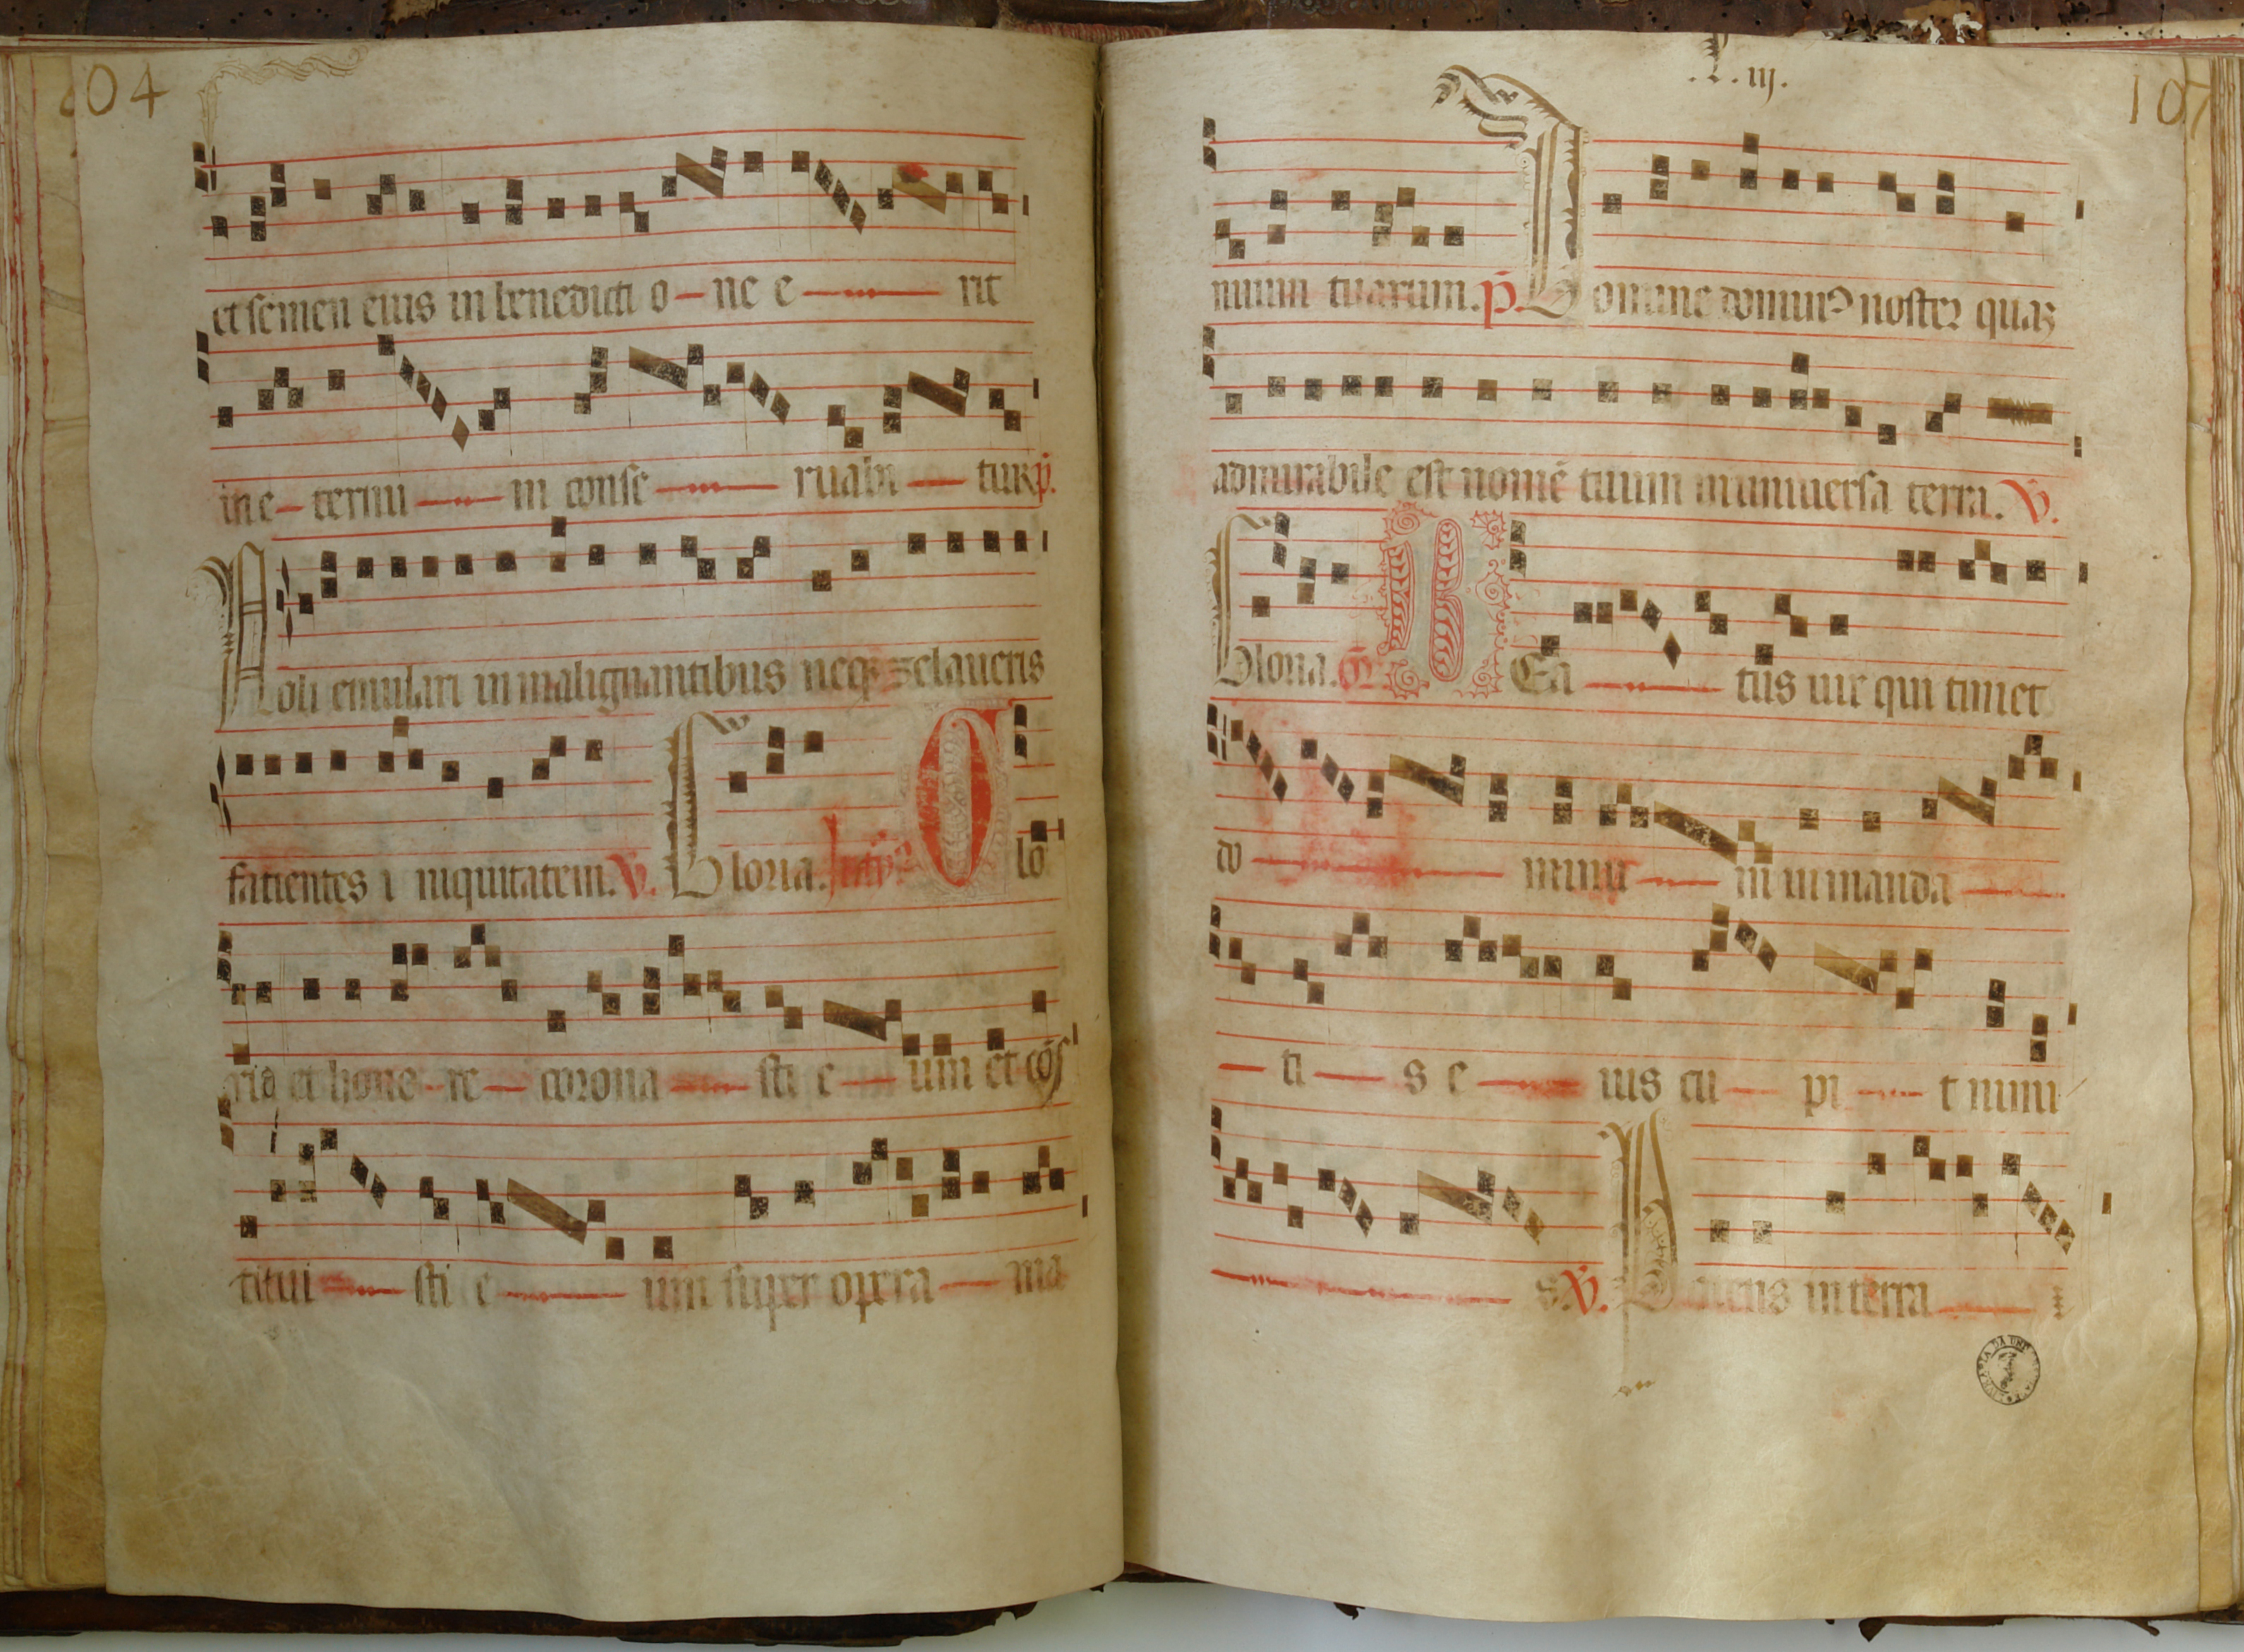 104
et semen eius in benedicti o ne e rit
in e ternu m conse ruabi tur p.
Noli emulari in malignantibus neq3 zelaueris
fatientes i niquitatem. V. Gloria. Glo
ria et hono re corona sti e um et cōs
titui sti e um super opera ma
.L. iij.
107
nuum tuarum. p. Domine domin9 noster quaz
admirabile est nomē tuum in uniuersa terra. V.
Gloria. BEa tus uir qui timet
do minu m in manda
ti s e ius cu pi t nimi
s V. Potens in terra